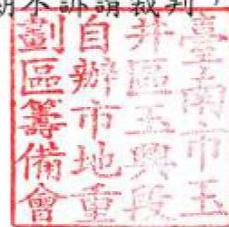 不訴請裁判，
臺南市玉
井區玉興段
自辦市地重
劃區籌備會